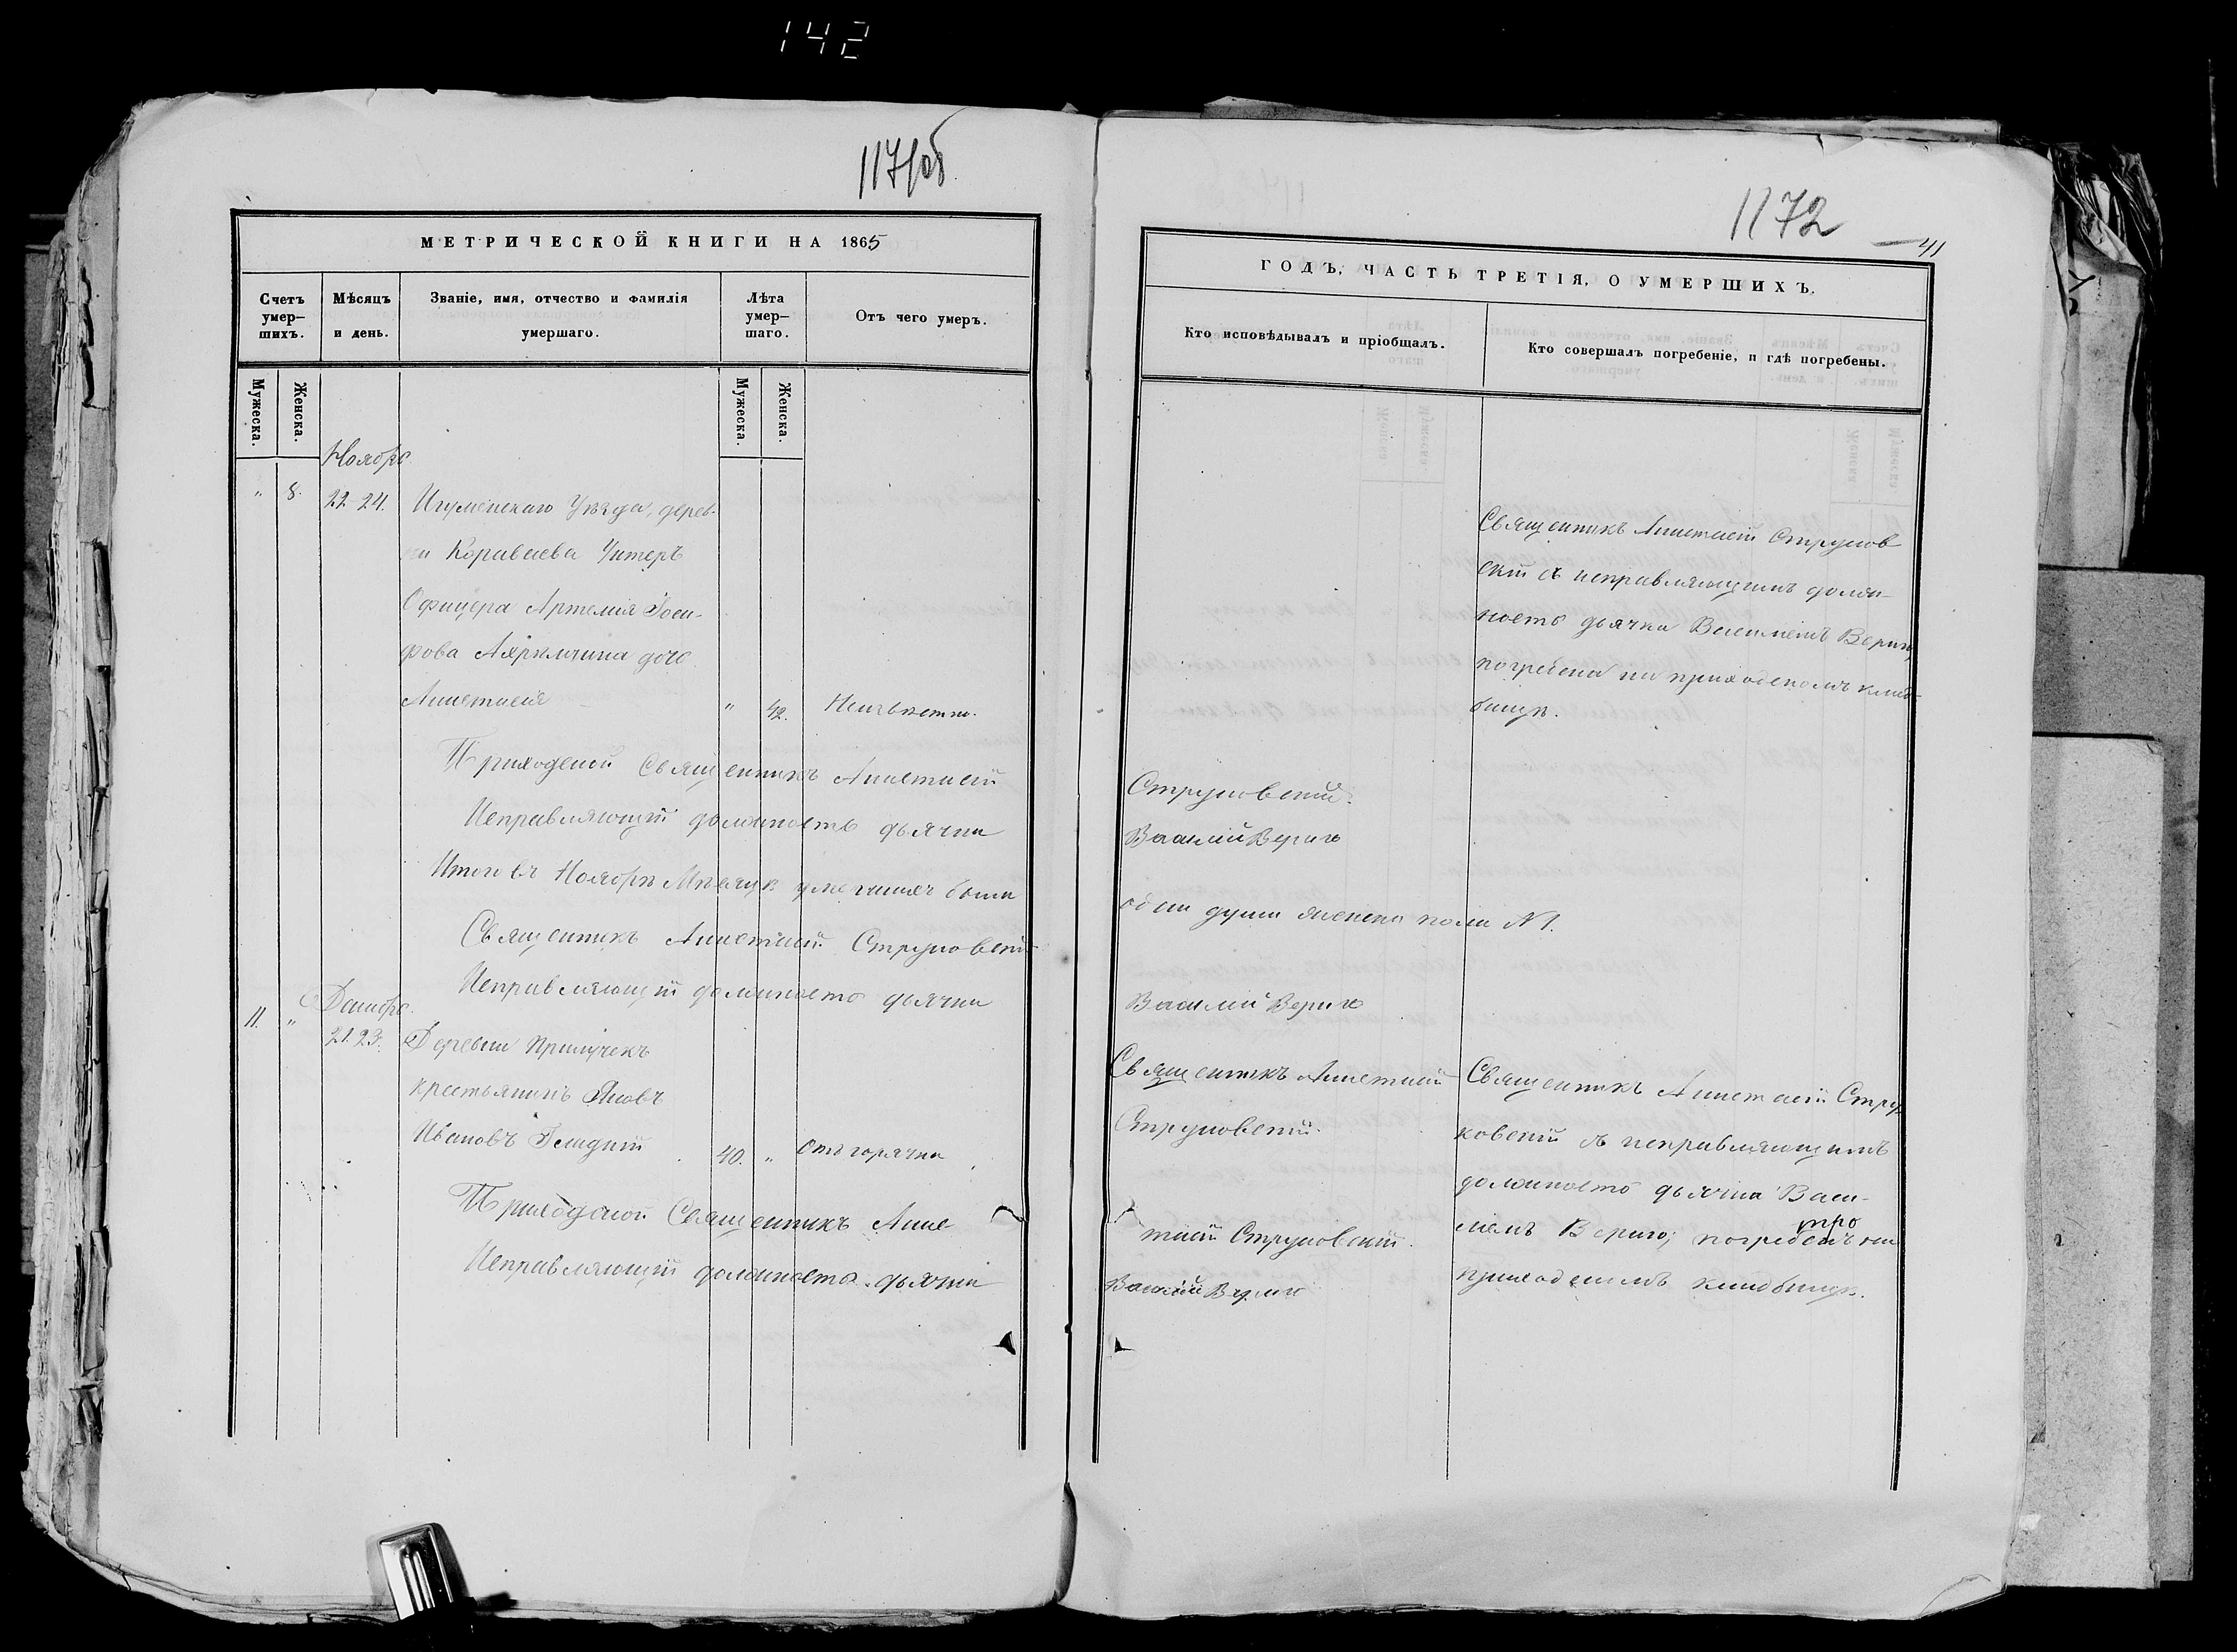 142
117/об
МЕТРИЧЕСКОЙ КНИГИ НА 1865
Счетъ умер–шихъ.
Мѣсяцъ и день.
Званіе, имя, отчество и фамилія умершаго.
Лѣта умер–шаго.
Отъ чего умеръ.
Мужеска.
Женска.
Мужеска.
Женска.
Ноябрь
" 8. 22 24. Игуменскаго Уѣзда, дерев-
ни Караваева Унтеръ
Офицера Артемія Іоси-
фова дочь
Анастасія " 42. Неизвѣстно.
Приходской Священникъ Анастасій
Исправляющій должность дьячка
Итого въ Ноябрѣ Мѣсяцѣ умершихъ была
Священникъ Анастасій Струковскій
Исправляющій должность дьячка
Декабрь.
11. " 21. 23. Деревни
крестьянинъ Яковъ
Ивановъ 40. " Отъ горячки
Приходской Священникъ Анас
Исправляющій должность дьячка
1172
41
ГОДЪ, ЧАСТЬ ТРЕТІЯ, О УМЕРШИХЪ.
Кто исповѣдывалъ и пріобщалъ.
Кто совершалъ погребеніе, и гдѣ погребены.
Священникъ Анастасій Струков
скій съ исправляющимъ долж-
ность дьячка Василіемъ Вериго,
погребена на приходскомъ клад-
бищѣ.
Струковскій.
Василій Вериго
одна душа женска пола № 1.
Василій Вериго
Священникъ Анастасій
Струковскій.
Священникъ Анастасій Стру
ковскій съ исправляющимъ
должность дьячка Васи-
ліемъ Вериго; погребенъ на
приходскомъ кладбищѣ.
тасій Струковскій.
Василій Вериго